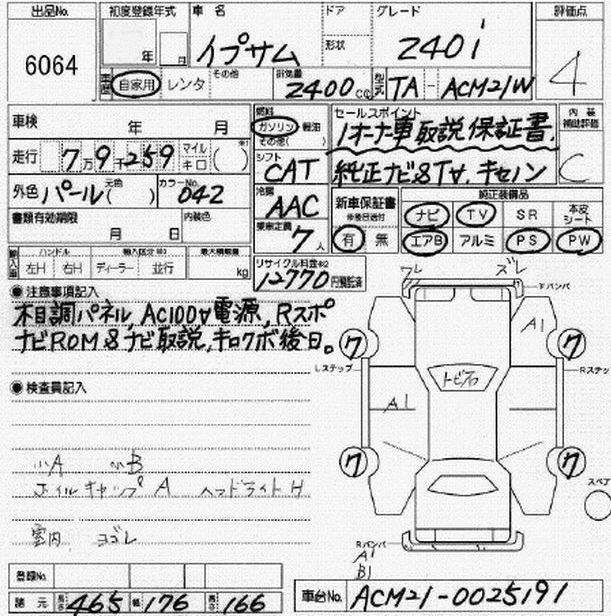 出品No. 初度登録年式 車名 ドア グレード 評価点
6064 年 月 イプサム 形状 240i 4
車歴 自家用 レンタ その他 排気量 2400cc 型式 TA - ACM21W
車検 年 月 燃料 ガソリン 軽油 その他( ) セールスポイント 内装補助評価
1オーナー車 取説 保証書 C
走行 7万9千259 マイル キロ ( ) シフト CAT 純正ナビ&TV. キセノン
外色 パール 元色( ) カラーNo. 042 冷房 AAC 新車保証書 有 無 純正装備品
ナビ TV SR 本皮シート
書類有効期限 月 日 内装色 乗車定員 7人 エアB アルミ PS PW
輸入車 ハンドル 左H 右H 輸入区分 ディーラー 並行 最大積載量 kg リサイクル料金 12770円預託済
●注意事項記入
木目調パネル, AC100V電源, Rスポ
ナビROM&ナビ取説, キロクボ後日。
●検査員記入
小A 小B
ホイルキャップ A ヘッドライト H
室内 ヨゴレ
ワレ ズレ
Fバンパ
A1
7 7
Lステップ Rステッ
トビ石
A1
7 7
スペア
Rバンパ
A1
B1
登録No.
諸元 長さ 465 幅 176 高さ 166
車台No. ACM21-0025191